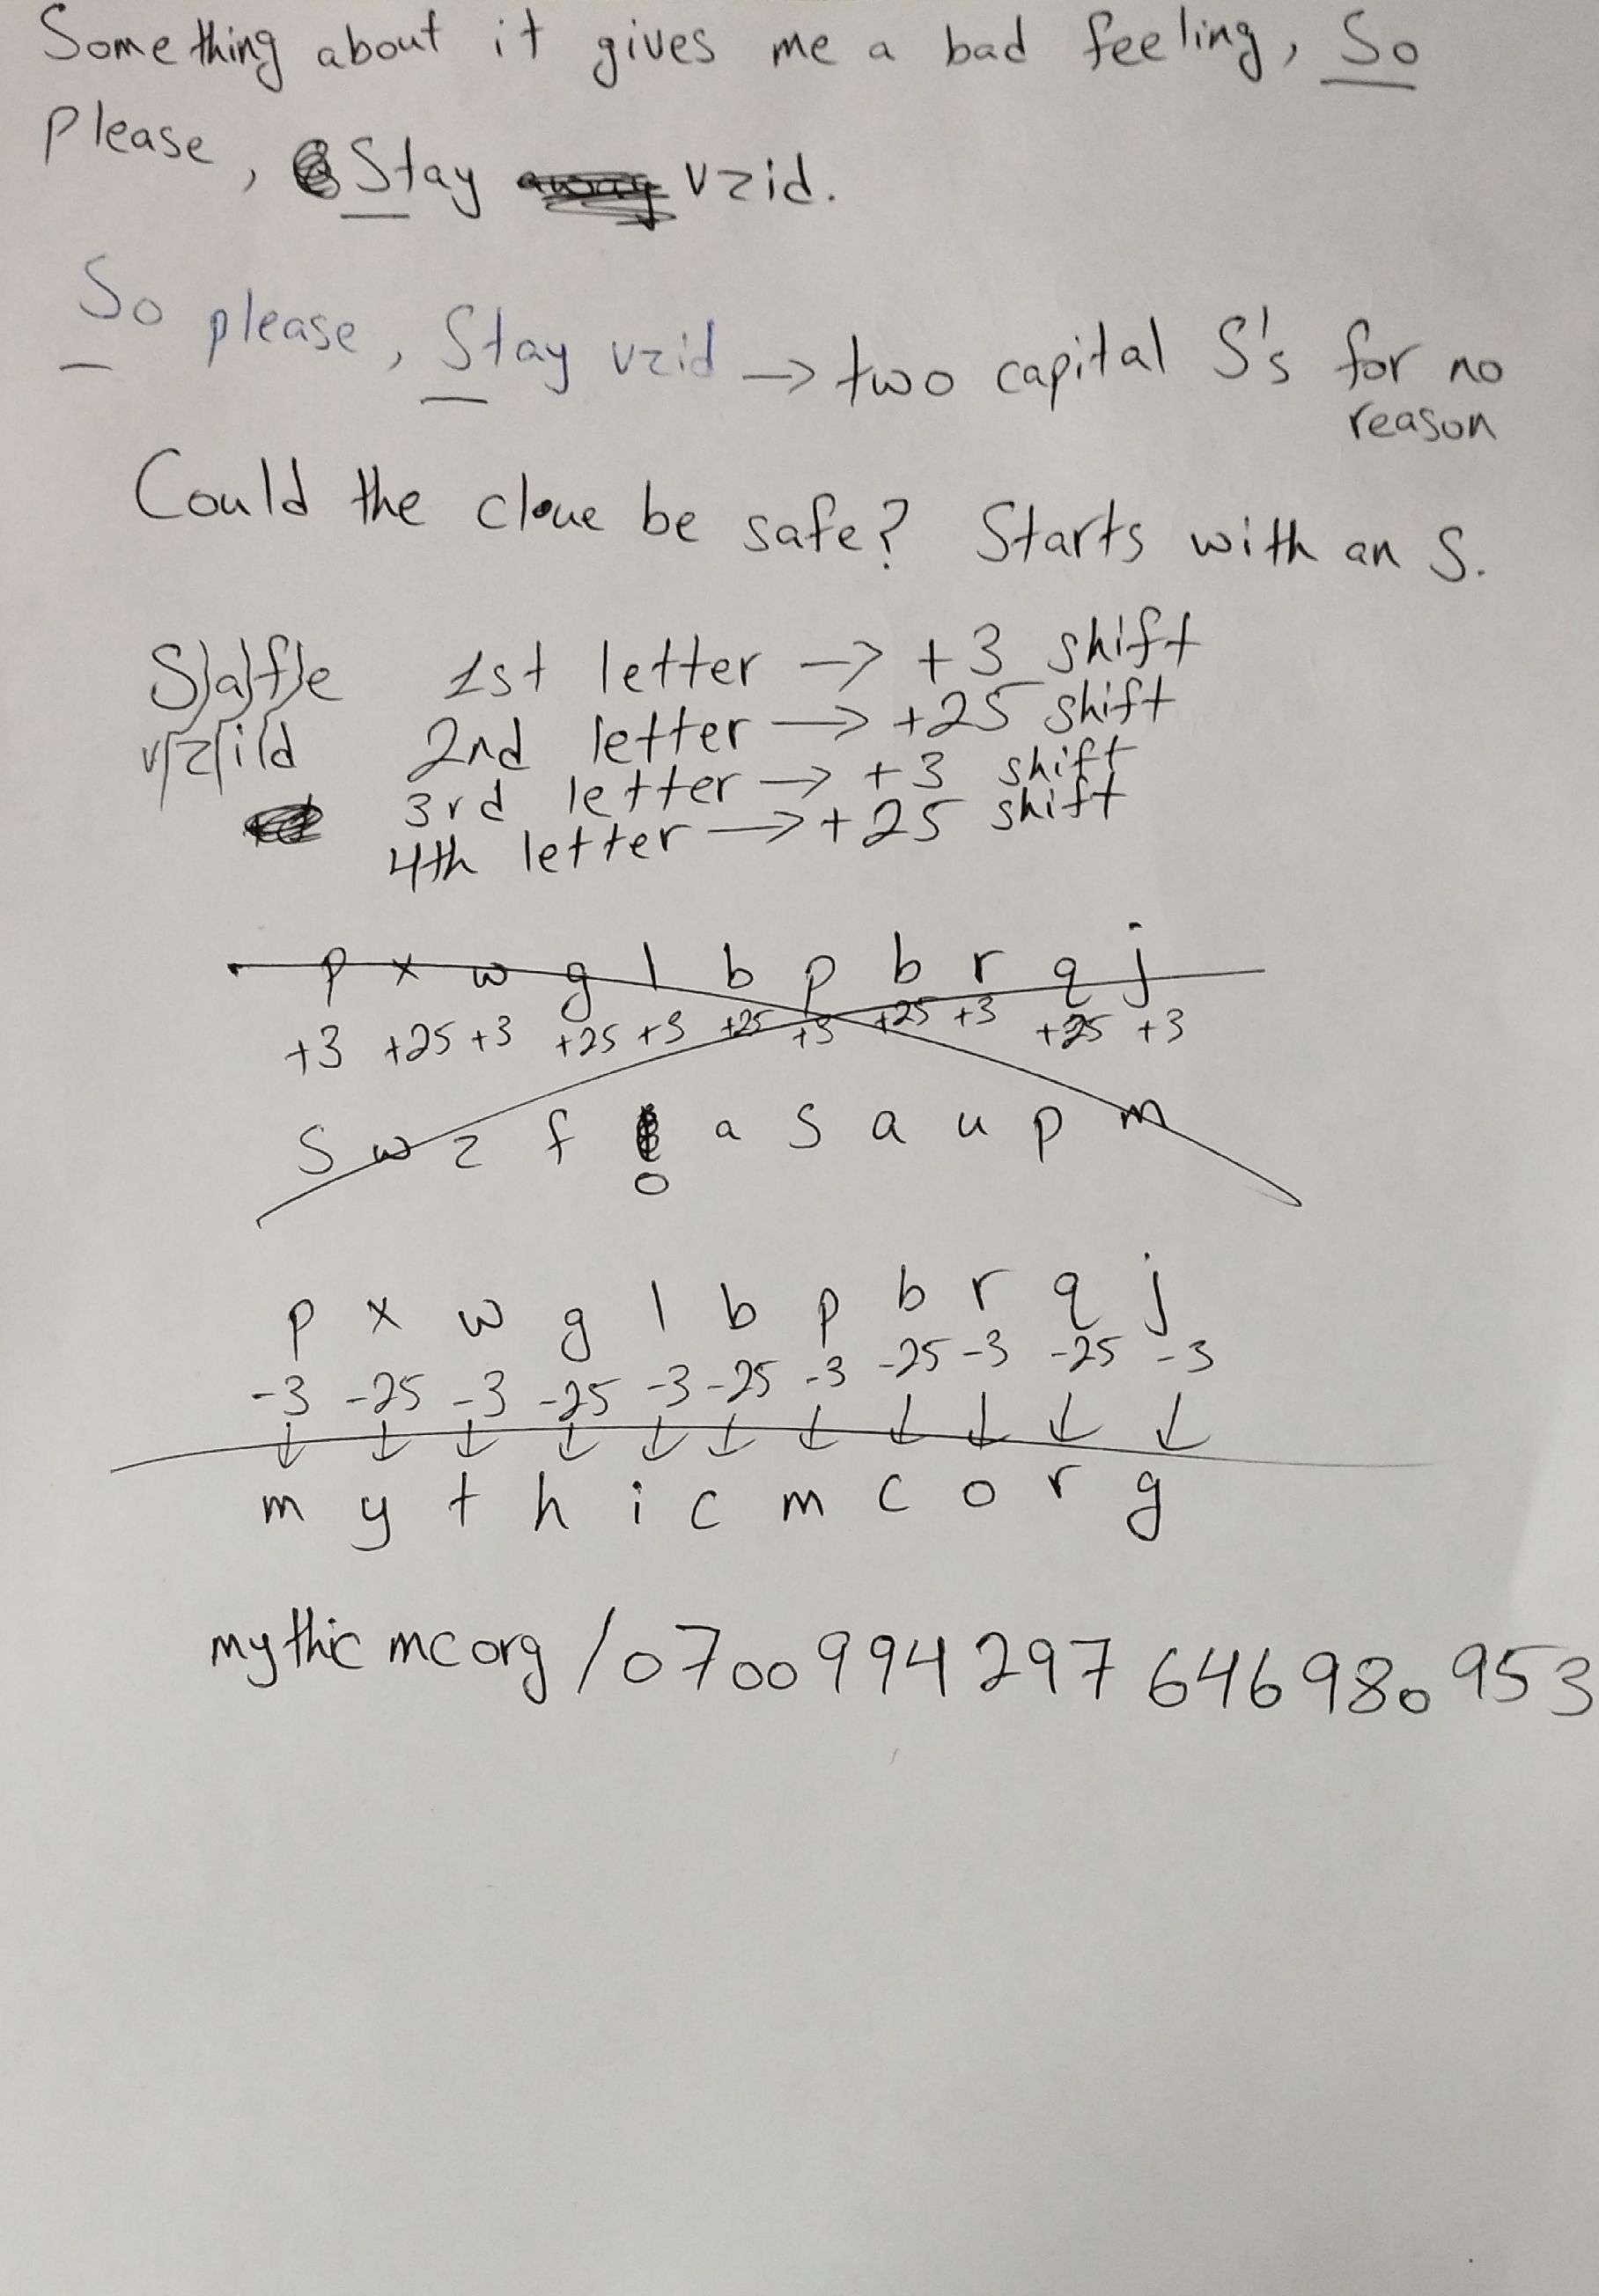 Something about it gives me a bad feeling, So
please, Stay vzid.
So please, Stay vzid → two capital S's for no
reason
Could the cloue be safe? Starts with an S.
S)a)f)e 1st letter → +3 shift
v/z/i/d 2nd letter → +25 shift
3rd letter → +3 shift
4th letter → +25 shift
p x w g l b p b r q j
+3 +25 +3 +25 +3 +25 +3 +25 +3 +25 +3
s w z f o a s a u p m
p x w g l b p b r q j
-3 -25 -3 -25 -3 -25 -3 -25 -3 -25 -3
↓ ↓ ↓ ↓ ↓ ↓ ↓ ↓ ↓ ↓ ↓
m y t h i c m c o r g
mythicmcorg/0700994297646980953